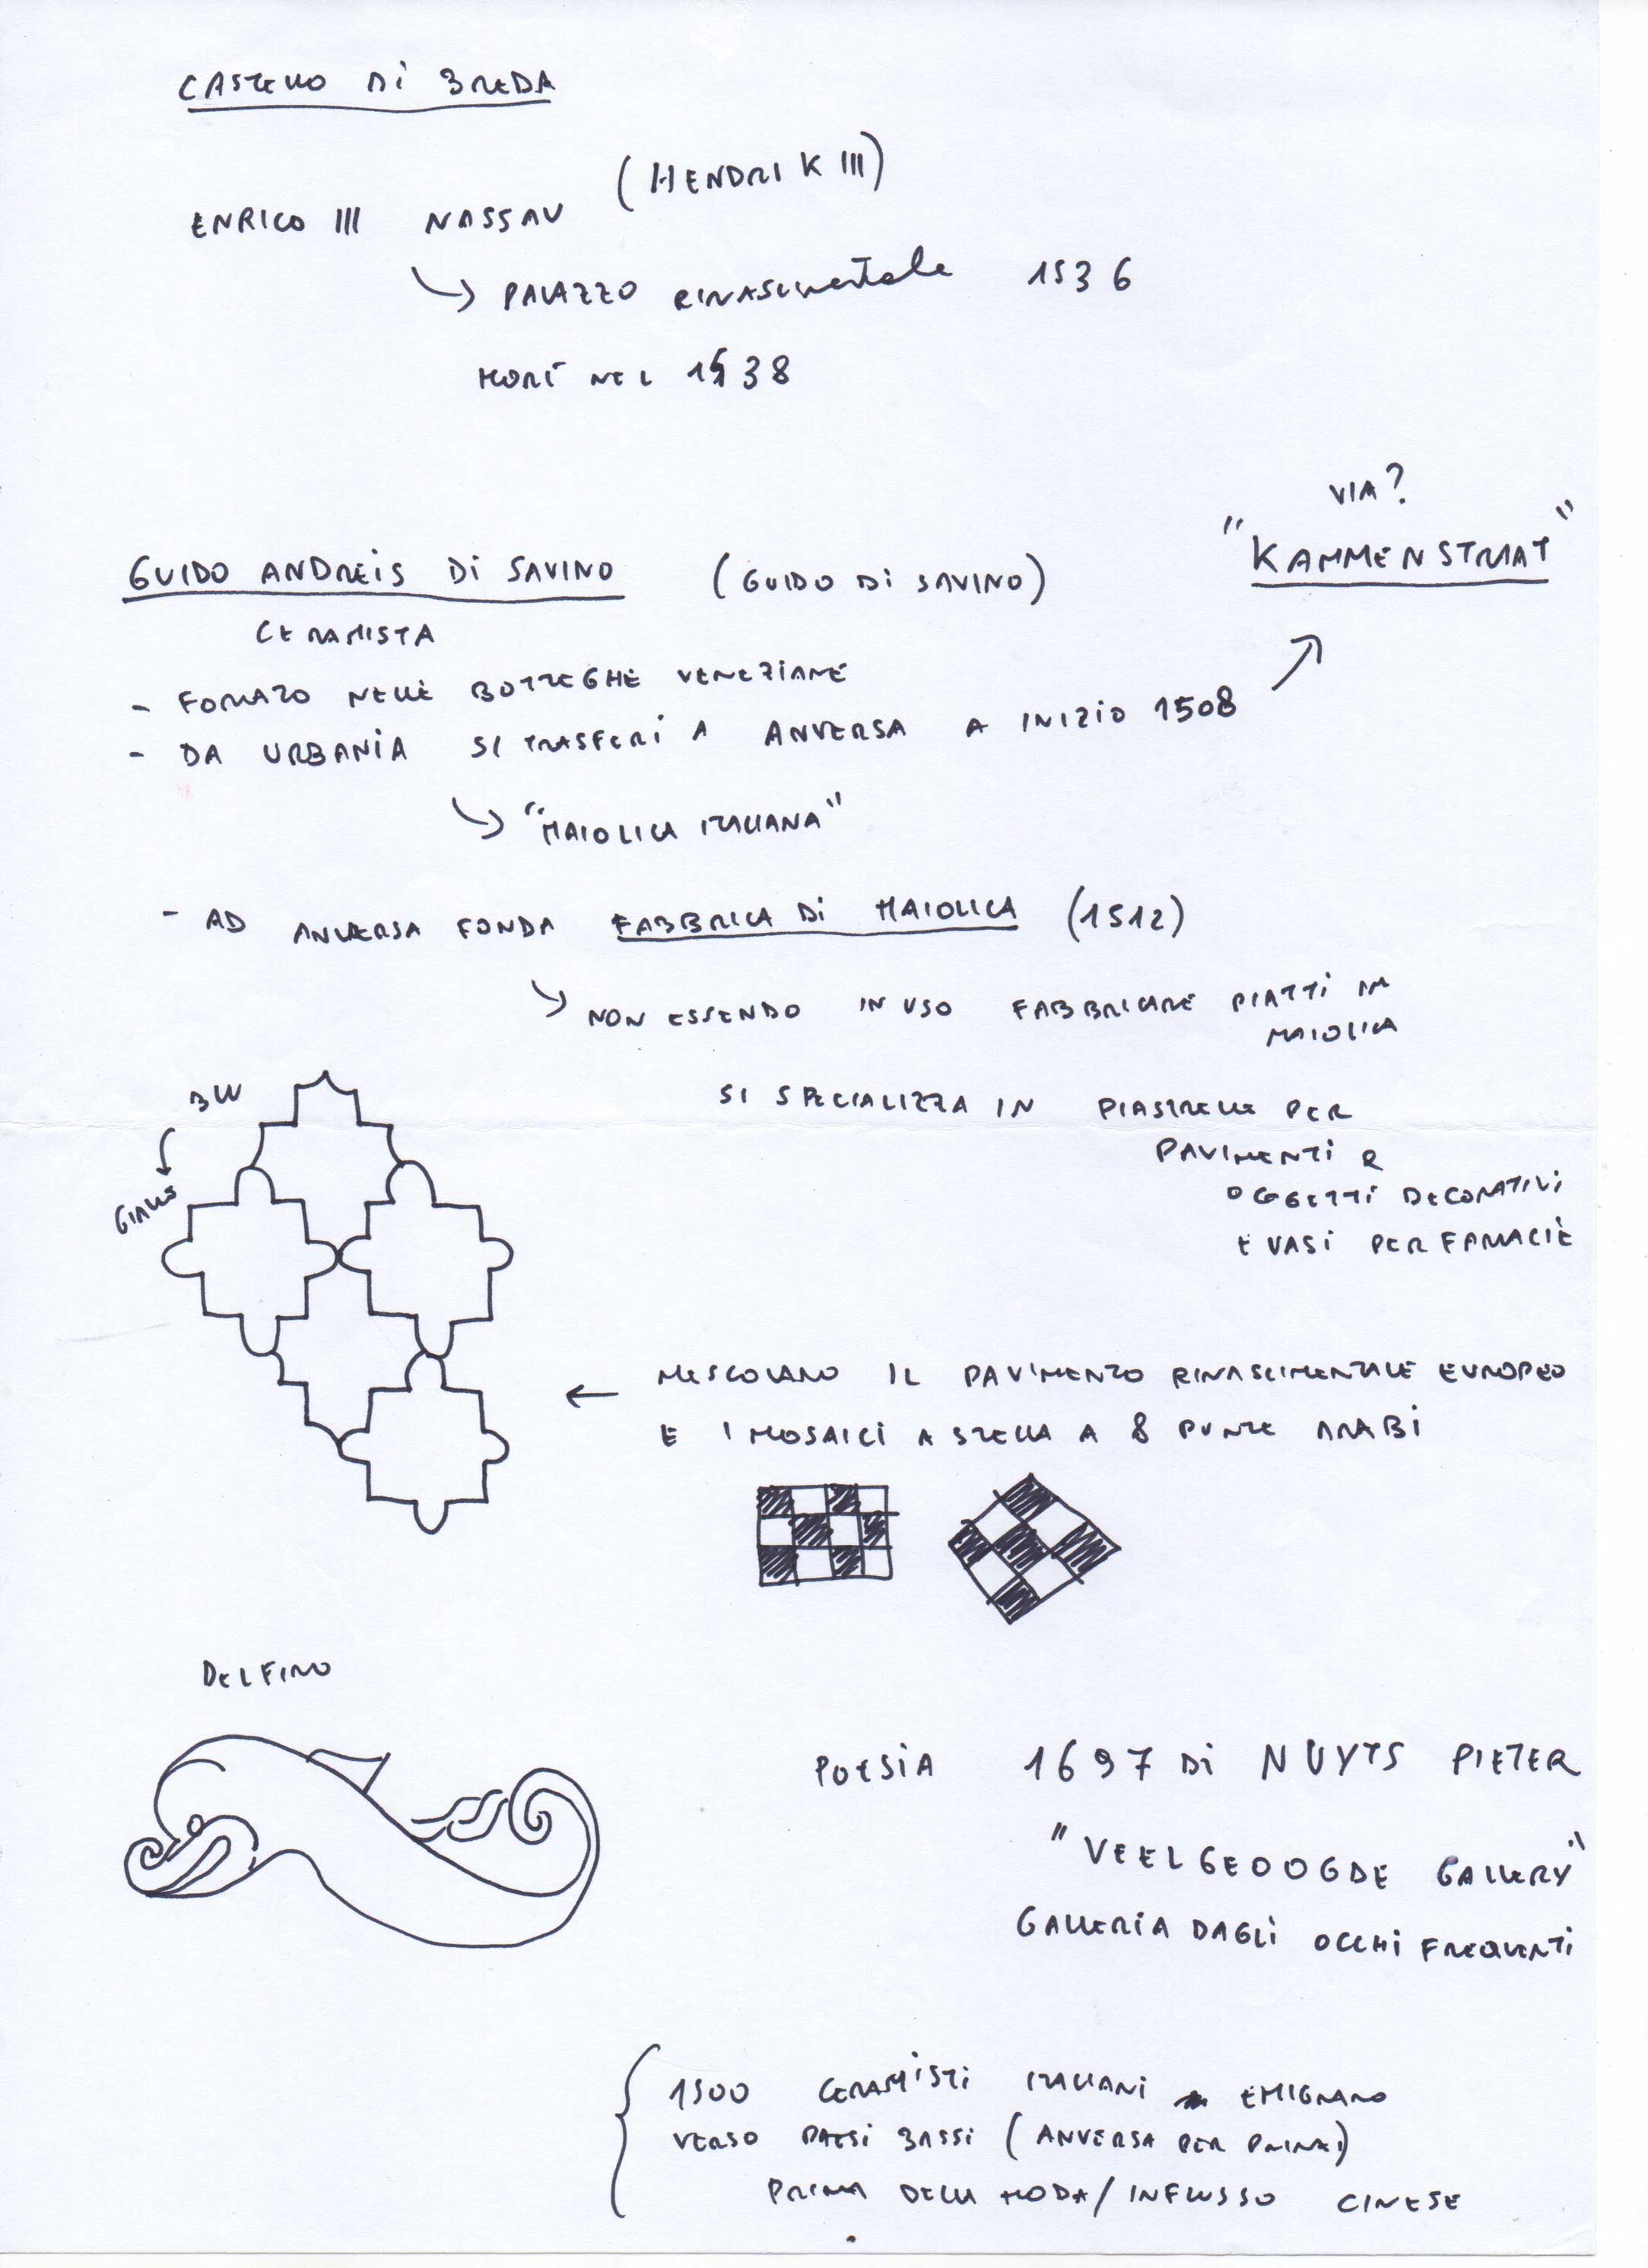 CASTELLO Di BREDA
(HENDRIK III)
ENRICO III NASSAU
PALAZZO RINASCIMENTALE 1536
MORÌ NEL 1538
VIA?
"KAMMENSTRAAT"
GUIDO ANDREIS Di SAVINO (GUIDO Di SAVINO)
CERAMISTA
- FORMATO NELLE BOTTEGHE VENEZIANE
- DA URBANIA SI TRASFERÌ A ANVERSA A INIZIO 1508
"MAIOLICA ITALIANA"
- AD ANVERSA FONDA FABBRICA Di MAIOLICA (1512)
NON ESSENDO IN USO FABBRICARE PIATTI IN
MAIOLICA
SI SPECIALIZZA IN PIASTRELLE PER
PAVIMENTI E
OGGETTI DECORATIVI
E VASI PER FARMACIE
BW
GIALLO
MESCOLANO IL PAVIMENTO RINASCIMENTALE EUROPEO
E I MOSAICI A STELLA A 8 PUNTE ARABI
DELFINO
POESIA 1697 Di NUYTS PIETER
"VEELGEOOGDE GALLERY"
GALLERIA DAGLI OCCHI FREQUENTI
1500 CERAMISTI ITALIANI EMIGRANO
VERSO PAESI BASSI (ANVERSA PER PRIMA)
PRIMA DELLA MODA/INFLUSSO CINESE